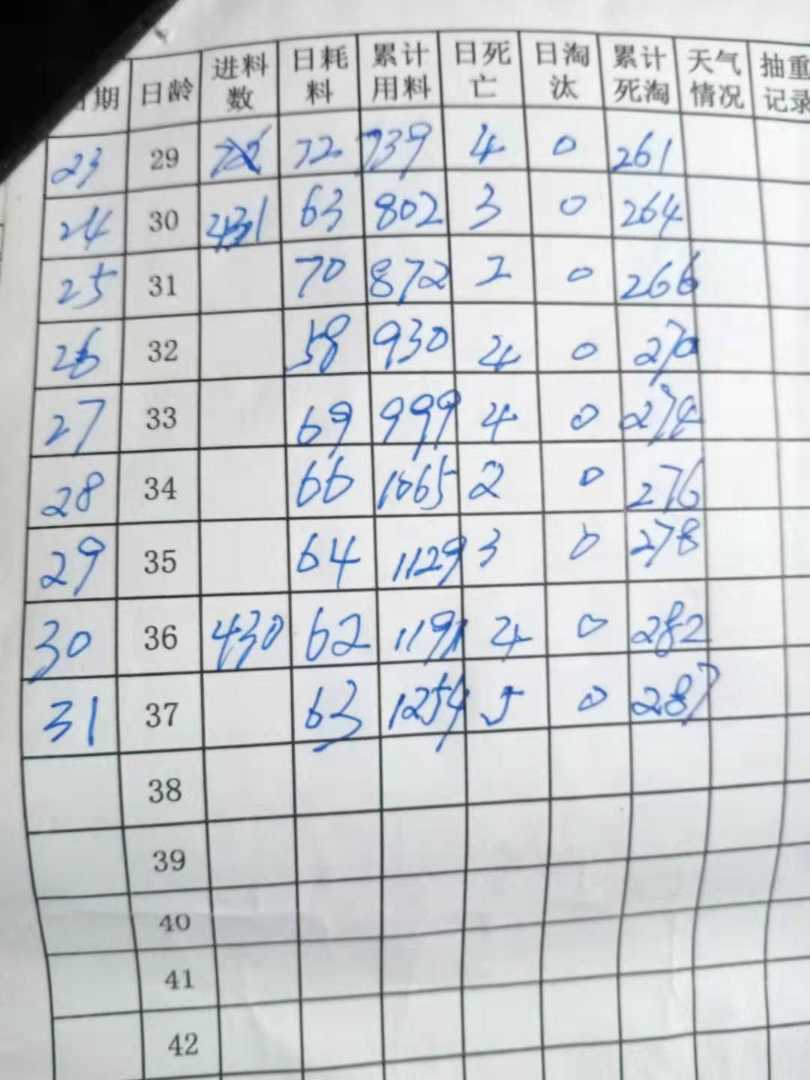 日期 日龄 进料数 日耗料 累计用料 日死亡 日淘汰 累计死淘 天气情况 抽重记录
23 29 72 739 4 0 261
24 30 431 63 802 3 0 264
25 31 70 872 2 0 266
26 32 58 930 4 0 270
27 33 69 999 4 0 274
28 34 66 1065 2 0 276
29 35 64 1129 3 0 278
30 36 430 62 1191 4 0 282
31 37 63 1254 5 0 287
38
39
40
41
42